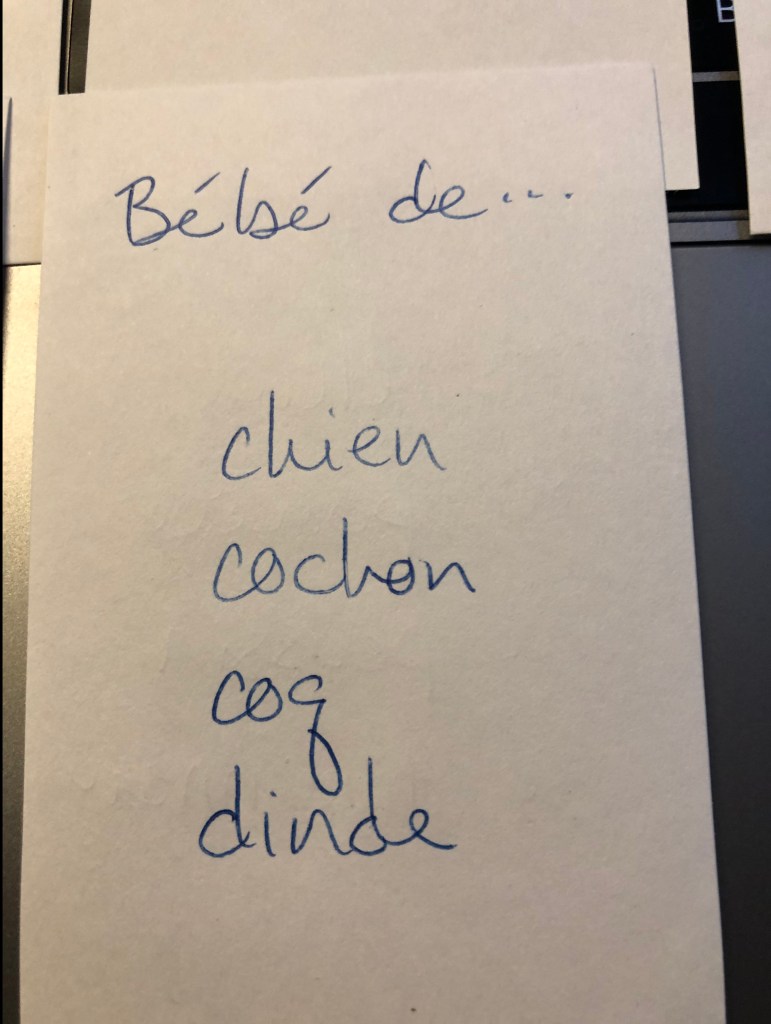 Bébé de...
chien
cochon
coq
dinde